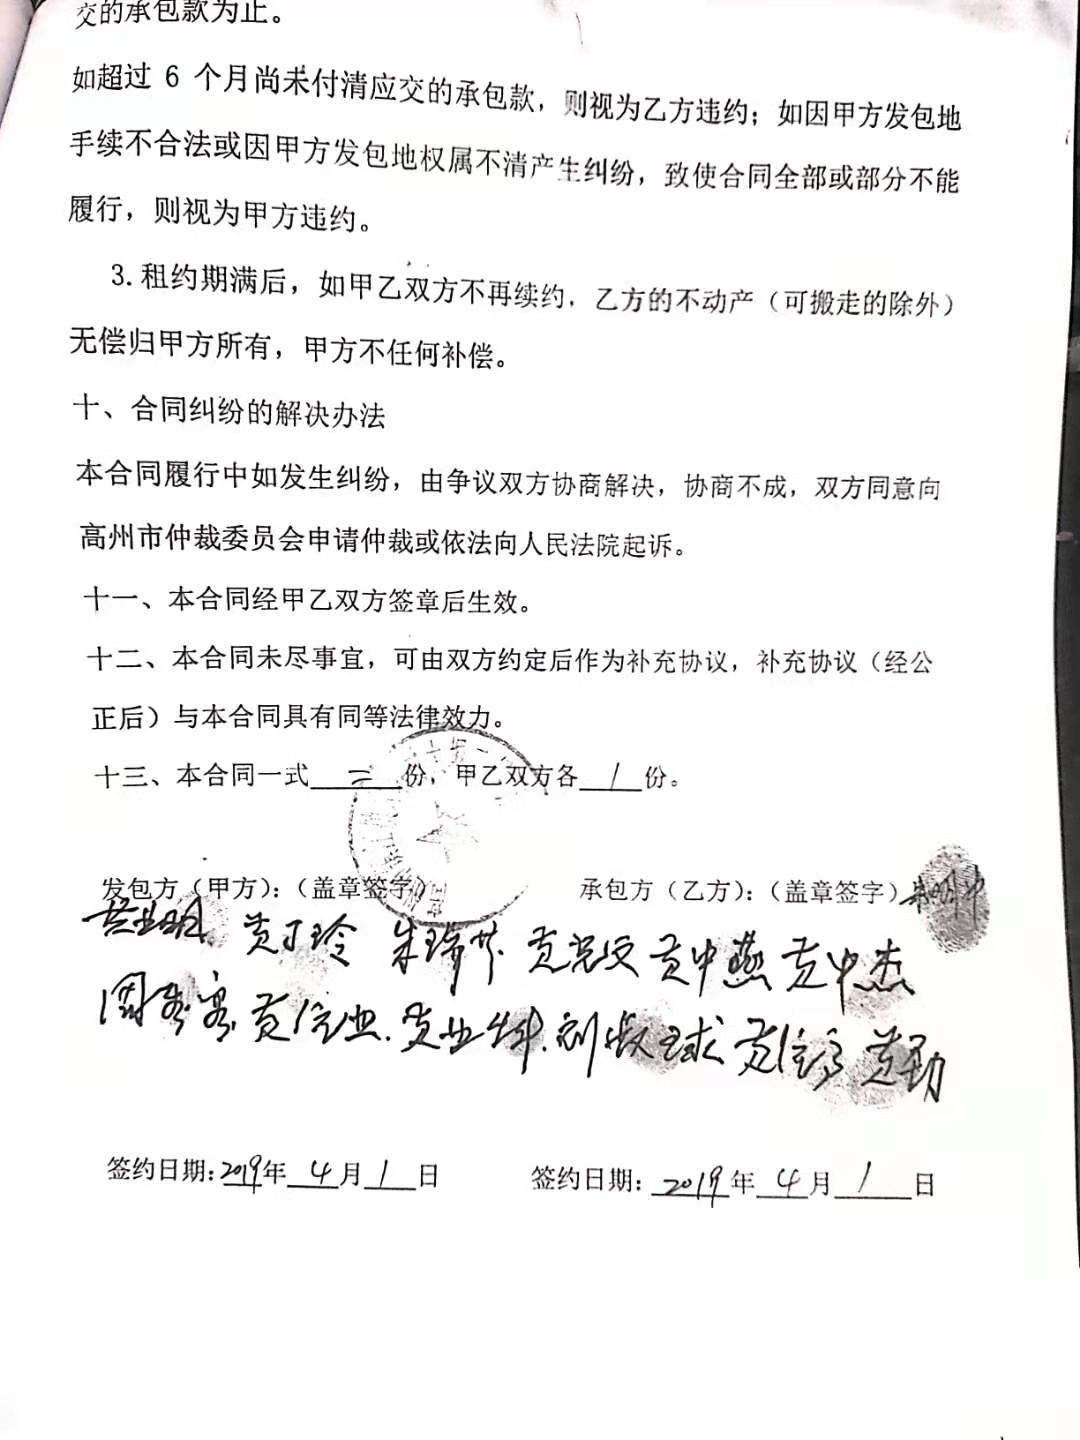 交的承包款为止。
如超过 6 个月尚未付清应交的承包款，则视为乙方违约；如因甲方发包地
手续不合法或因甲方发包地权属不清产生纠纷，致使合同全部或部分不能
履行，则视为甲方违约。
3.租约期满后，如甲乙双方不再续约，乙方的不动产（可搬走的除外）
无偿归甲方所有，甲方不任何补偿。
十、合同纠纷的解决办法
本合同履行中如发生纠纷，由争议双方协商解决，协商不成，双方同意向
高州市仲裁委员会申请仲裁或依法向人民法院起诉。
十一、本合同经甲乙双方签章后生效。
十二、本合同未尽事宜，可由双方约定后作为补充协议，补充协议（经公
正后）与本合同具有同等法律效力。
十三、本合同一式二份，甲乙双方各1份。
发包方（甲方）：（盖章签字） 承包方（乙方）：（盖章签字）
黄丁玲 黄中燕 黄中杰
黄信业 黄勁
签约日期：2019年4月1日 签约日期：2019年4月1日